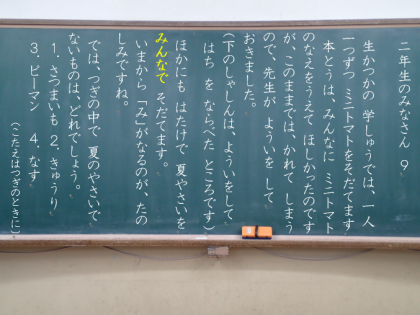 二年生のみなさん　９
生かつかの　学しゅうでは、一人
一つずつ　ミニトマトをそだてます
本とうは、みんなに　ミニトマト
のなえをうえて　ほしかったのです
が、このままでは、かれて　しまう
ので、先生が　よういを　して
おきました。
（下のしゃしんは、よういをして
はち　を　ならべた　ところです）
ほかにも　はたけで　夏やさいを
みんなで　そだてます。
いまから　「み」がなるのが、たの
しみですね。
では、つぎの中で　夏のやさいで
ないものは、どれでしょう。
１．さつまいも　２．きゅうり
３．ピーマン　４．なす
（こたえはつぎのときに）